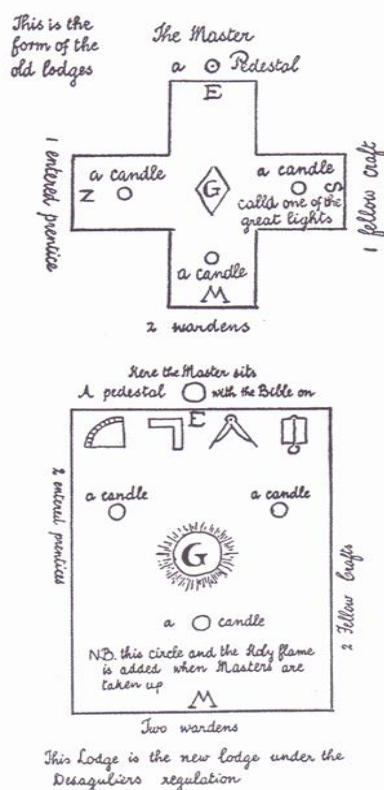 This is the
form of the
old lodges
The Master
a Pedestal
E
1 entered prentice
a candle
N
G
a candle
S
calld one of the
great lights
1 fellow craft
a candle
W
2 wardens
Here the Master sits
A pedestal with the Bible on
E
2 entered prentices
a candle
a candle
G
2 Fellow Crafts
a candle
N.B. this circle and the Holy flame
is added when Masters are
taken up
W
Two wardens
This Lodge is the new lodge under the
Desaguliers regulation